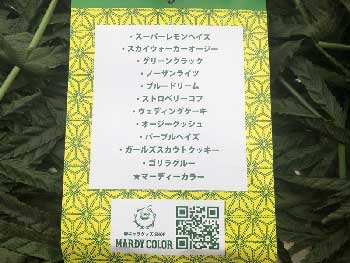 ・スーパーレモンヘイズ
・スカイウォーカーオージー
・グリーンクラック
・ノーザンライツ
・ブルードリーム
・ストロベリーコフ
・ウェディングケーキ
・オージークッシュ
・パープルヘイズ
・ガールズスカウトクッキー
・ゴリラグルー
★マーディーカラー
MARDY COLOR